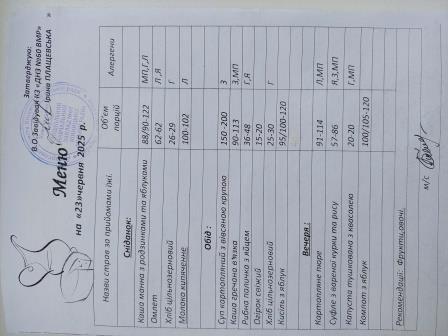 Затверджую:
В.О Завідувач КЗ «ДНЗ №60 ВМР»
Ірина ПЛАЩЕВСЬКА
Меню
на «23»червня 2025 р.
Назви страв за прийомами їжі. Об'єм порцій Алергени
Сніданок:
Каша манна з родзинками та яблуками 88/90-122 МП,Г,Л
Омлет 62-62 Я
Хліб цільнозерновий 26-29 Г
Молоко кипячене 100-102 Л
Обід :
Суп картопляний з вівсяною крупою 150-200 З
Каша гречана в'язка 90-113 З,МП
Рибна паличка з яйцем 36-48 Г,Я
Огірок свіжий 15-20
Хліб цільнозерновий 25-30 Г
Кисіль з яблук 95/100-120
Вечеря :
Картопляне пюре 91-114 Л,МП
Суфле з вареної курки та рису 57-86 Я,З,МП
Капуста тушкована з квасолею 20-20 Г,МП
Компот з яблук 100/105-120
Рекомендації: Фрукти,овочі.
м/с